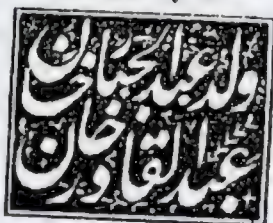 ولد عبد الجبار خان
عبد القادر خان